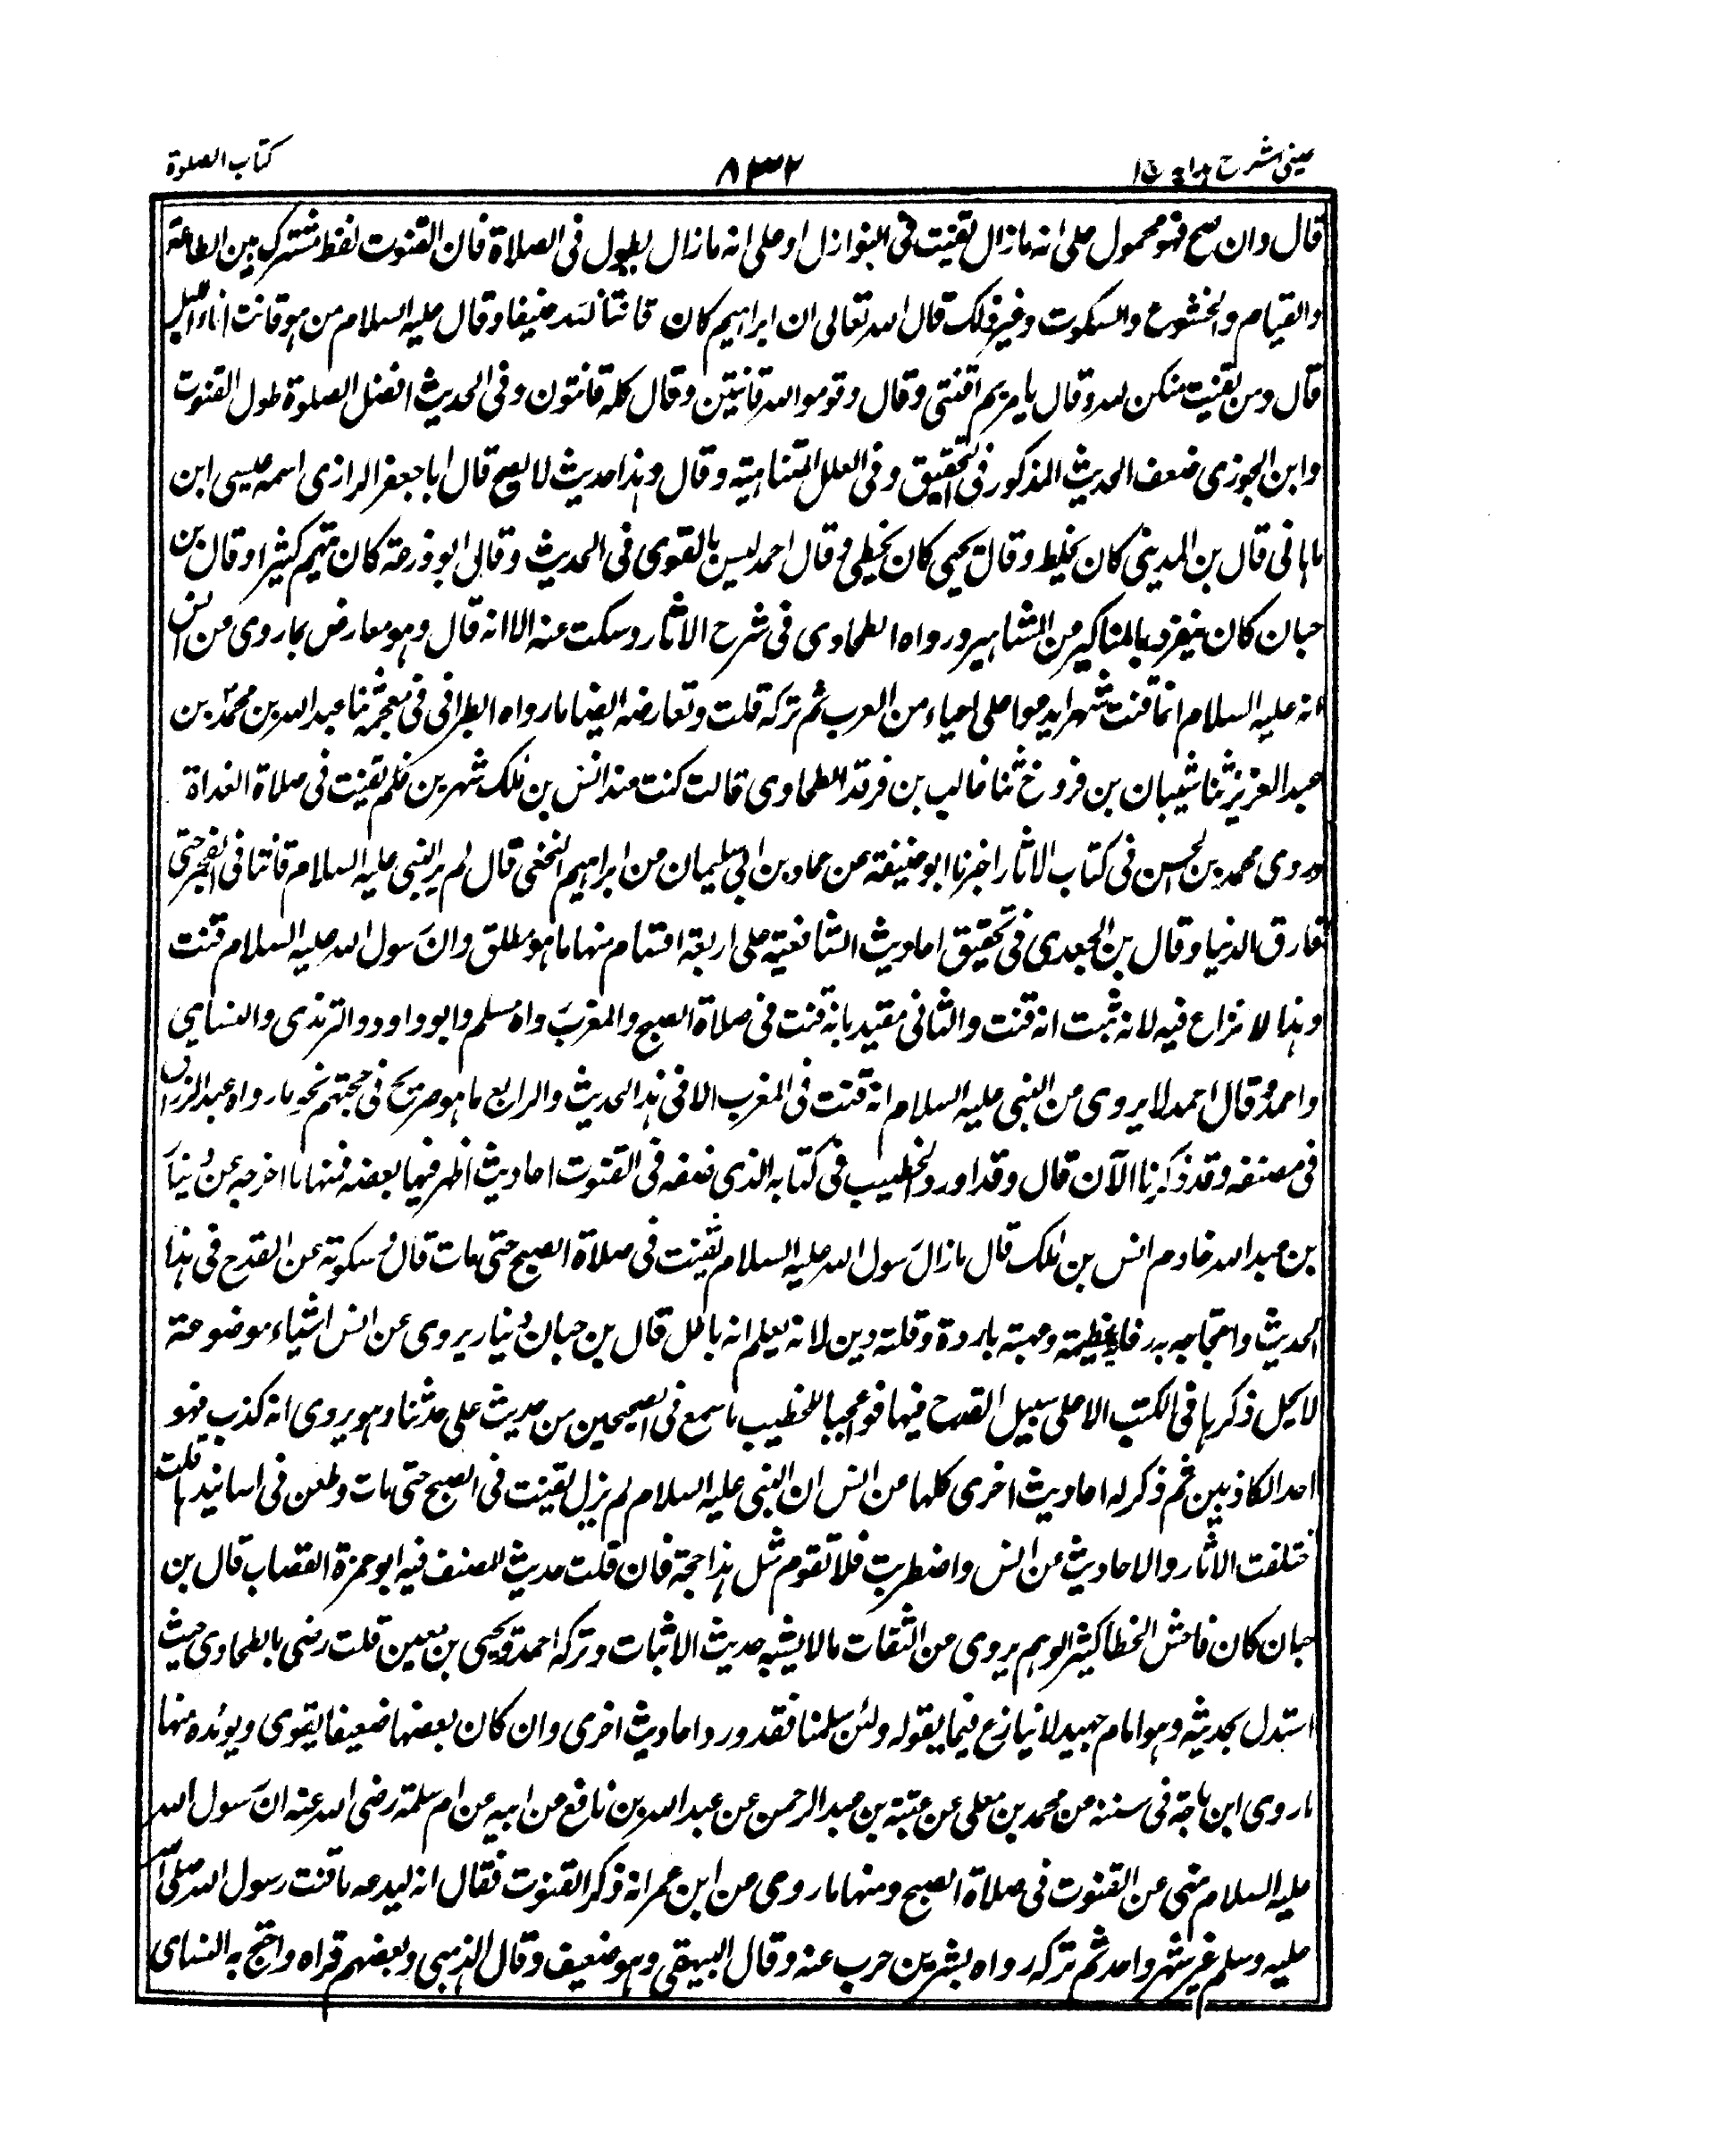 عینی شرح ہدایہ ج ۱
۸۳۲
کتاب الصلوة
قال وان صح فهو محمول على انه مازال يقنت فى النوازل او على انه مازال يطول فى الصلاة فان القنوت لفظ مشترك بين الطاعة
والقيام والخشوع والسكوت وغير ذلك قال الله تعالى ان ابراهيم كان قانتا لله حنيفا وقال عليه السلام من هو قانت اناء الليل
قال ومن يقنت منكن لله وقال يا مريم اقنتى وقال وقوموا لله قانتين وقال كله قانتون وفى الحديث افضل الصلوة طول القنوت
وابن الجوزى ضعف الحديث المذكور فى التحقيق وفى العلل المتناهية وقال وهذا حديث لا يصح قال ابا جعفر الرازى اسمه عيسى ابن
ماهانى قال بن المدينى كان يخلط وقال يحيى كان يخطى وقال احمد ليس بالقوى فى الحديث وقال ابو زرعة كان يتهم كثيرا وقال بن
حبان كان ينفرد بالمناكير من المشاهير ورواه الطحاوى فى شرح الاثار وسكت عنه الا انه قال وهو معارض بما روى عن انس
انه عليه السلام انما قنت شهرا يدعوا على احياء من العرب ثم تركه قلت وتعارضه ايضا ما رواه الطبرانى فى معجمه ثنا عبد الله بن محمد بن
عبد العزيز ثنا شيبان بن فروخ ثنا غالب بن فرقد الطحاوى قالت كنت عند انس بن ملك شهرين فلم يقنت فى صلاة الغداة
وروى محمد بن الحسن فى كتاب الاثار اخبرنا ابو حنيفة عن حماد بن ابى سليمان من ابراهيم النخعى قال لم ير النبى عليه السلام قانتا فى الفجر حتى
فارق الدنيا وقال بن الجعدى فى تحقيق احاديث الشافعية على اربعة اقسام منها ما هو مطلق وان رسول الله عليه السلام قنت
وهذا لا نزاع فيه لانه ثبت انه قنت والثانى مقيد بانه قنت فى صلاة الصبح والمغرب رواه مسلم وابو داود والترمذى والنساى
واحمد وقال احمد لا يروى من النبى عليه السلام انه قنت فى المغرب الا فى هذا الحديث والرابع ما هو صريح فى حجتهم نحو ما رواه عبد الرزاق
فى مصنفه وقد ذكرنا الآن قال وقد اورد الخطيب فى كتابه الذى صنفه فى القنوت احاديث اظهر فيها بعضه فمنها ما اخرجه عن دينار
بن عبد الله خادم انس بن ملك قال مازال رسول الله عليه السلام يقنت فى صلاة الصبح حتى مات قال وسكوته عن القدح فى هذا
الحديث واحتجاجه به رفاعظيمة ومحبته باردة وقلته دين لانه يعلم انه باطل قال بن حبان دينار يروى عن انس اشياء موضوعة
لا يحل ذكرها فى الكتب الا على سبيل القدح فيها فواعجبا للخطيب ما سمع فى الصحيحين من حديث على حدثنا وهو يروى انه كذب فهو
احد الكاذبين ثم ذكر له احاديث اخرى كلها عن انس ان النبى عليه السلام لم يزل يقنت فى الصبح حتى مات وطعن فى اسانيدها قلت
اختلفت الاثار والاحاديث عن انس واضطربت فلا تقوم مثل هذا حجة فان قلت حديث المصنف فيه ابو حمزة القصاب قال بن
حبان كان فاحش الخطا كثير الوهم يروى من الثقات ما لا يشبه حديث الاثبات وتركه احمد ويحيى بن معين قلت رضى بالطحاوى حيث
استدل بحديثه وهو امام جهبيد لا ينازع فيما يقوله ولئن سلمنا فقد ورد احاديث اخرى وان كان بعضها ضعيفا يقوى ويوئده منها
ما روى ابن ماجة فى سننه من محمد بن معلى عن عتبة بن عبد الرحمن عن عبد الله بن نافع من ابيه عن ام سلمة رضى الله عنه ان رسول الله
عليه السلام نهى عن القنوت فى صلاة الصبح ومنها ما روى من ابن عمر انه ذكر القنوت فقال انه لبدعه ما قنت رسول الله صلى الله
عليه وسلم غير شهر واحد ثم تركه رواه بشر بن حرب عنه وقال البيهقى وهو ضعيف وقال الذهبى وبعضهم قراه واحتج به النساى